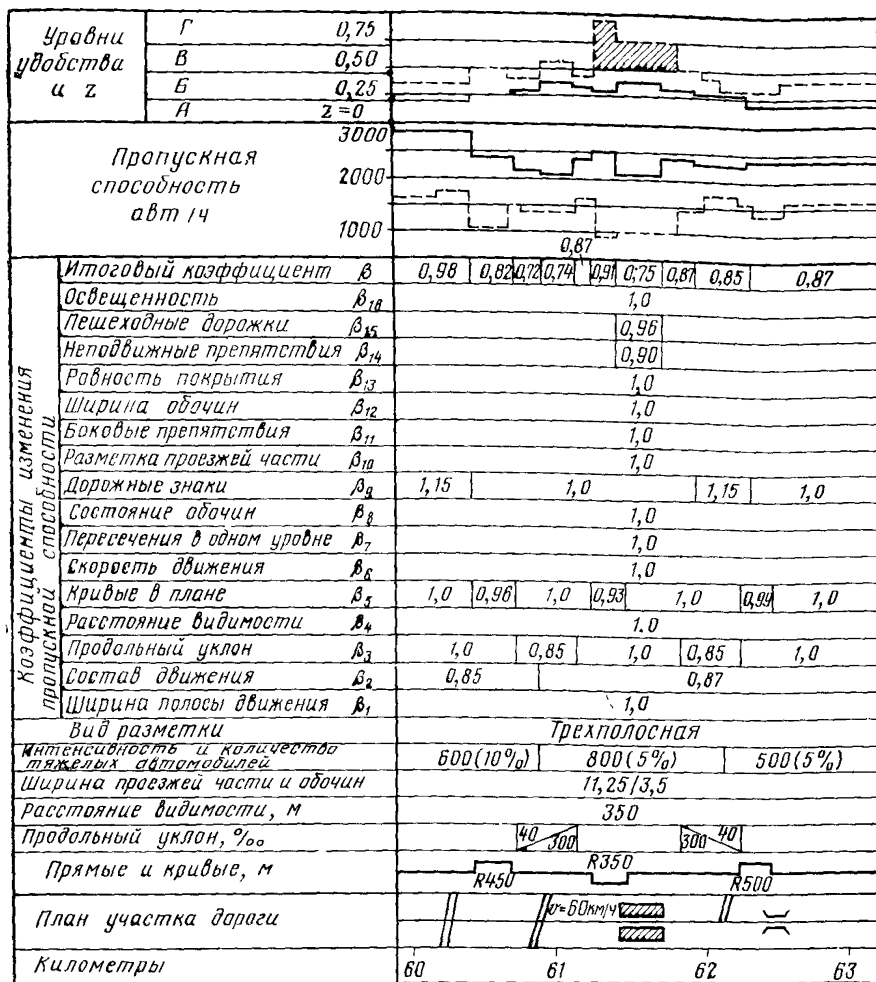 Уровни удобства и z
Г 0,75
В 0,50
Б 0,25
А z=0
Пропускная способность авт/ч
3000
2000
1000
0,87
Коэффициенты изменения пропускной способности
Итоговый коэффициент β 0,98 0,82 0,72 0,74 0,91 0,75 0,87 0,85 0,87
Освещенность β16 1,0
Пешеходные дорожки β15 0,96
Неподвижные препятствия β14 0,90
Ровность покрытия β13 1,0
Ширина обочин β12 1,0
Боковые препятствия β11 1,0
Разметка проезжей части β10 1,0
Дорожные знаки β9 1,15 1,0 1,15 1,0
Состояние обочин β8 1,0
Пересечения в одном уровне β7 1,0
Скорость движения β6 1,0
Кривые в плане β5 1,0 0,96 1,0 0,93 1,0 0,99 1,0
Расстояние видимости β4 1.0
Продольный уклон β3 1,0 0,85 1,0 0,85 1,0
Состав движения β2 0,85 0,87
Ширина полосы движения β1 1,0
Вид разметки Трехполосная
Интенсивность и количество тяжелых автомобилей 600(10%) 800(5%) 500(5%)
Ширина проезжей части и обочин 11,25/3,5
Расстояние видимости, м 350
Продольный уклон, ‰ 40 300 300 40
Прямые и кривые, м R450 R350 R500
План участка дороги v=60км/ч
Километры 60 61 62 63